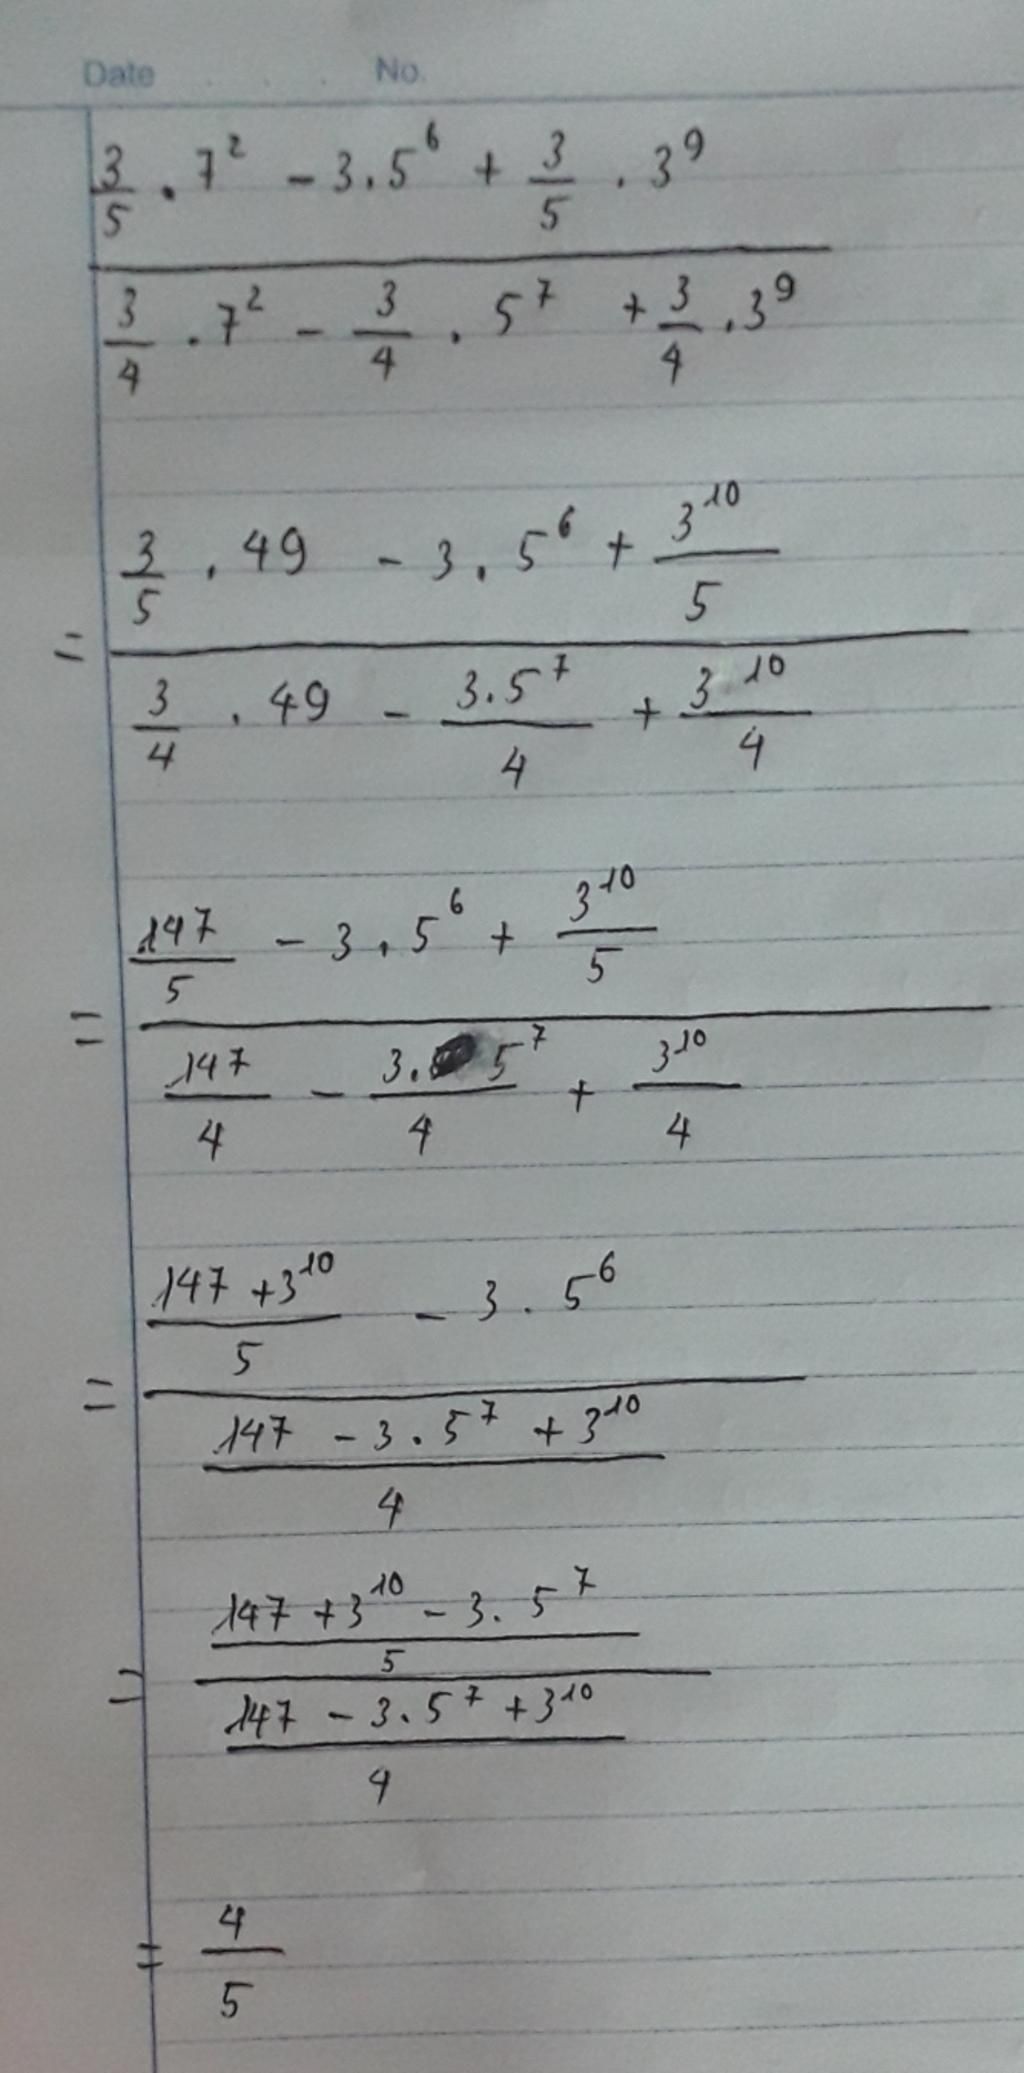 Date No.
3/5 . 7² - 3.5⁶ + 3/5 . 3⁹
3/4 . 7² - 3/4 . 5⁷ + 3/4 . 3⁹
= 3/5 . 49 - 3. 5⁶ + 3¹⁰/5
3/4 . 49 - 3.5⁷/4 + 3¹⁰/4
= 147/5 - 3 . 5⁶ + 3¹⁰/5
147/4 - 3. 5⁷/4 + 3¹⁰/4
= 147 + 3¹⁰/5 - 3 . 5⁶
147 - 3 . 5⁷ + 3¹⁰/4
= 147 + 3¹⁰ - 3. 5⁷/5
147 - 3.5⁷ + 3¹⁰/4
= 4/5